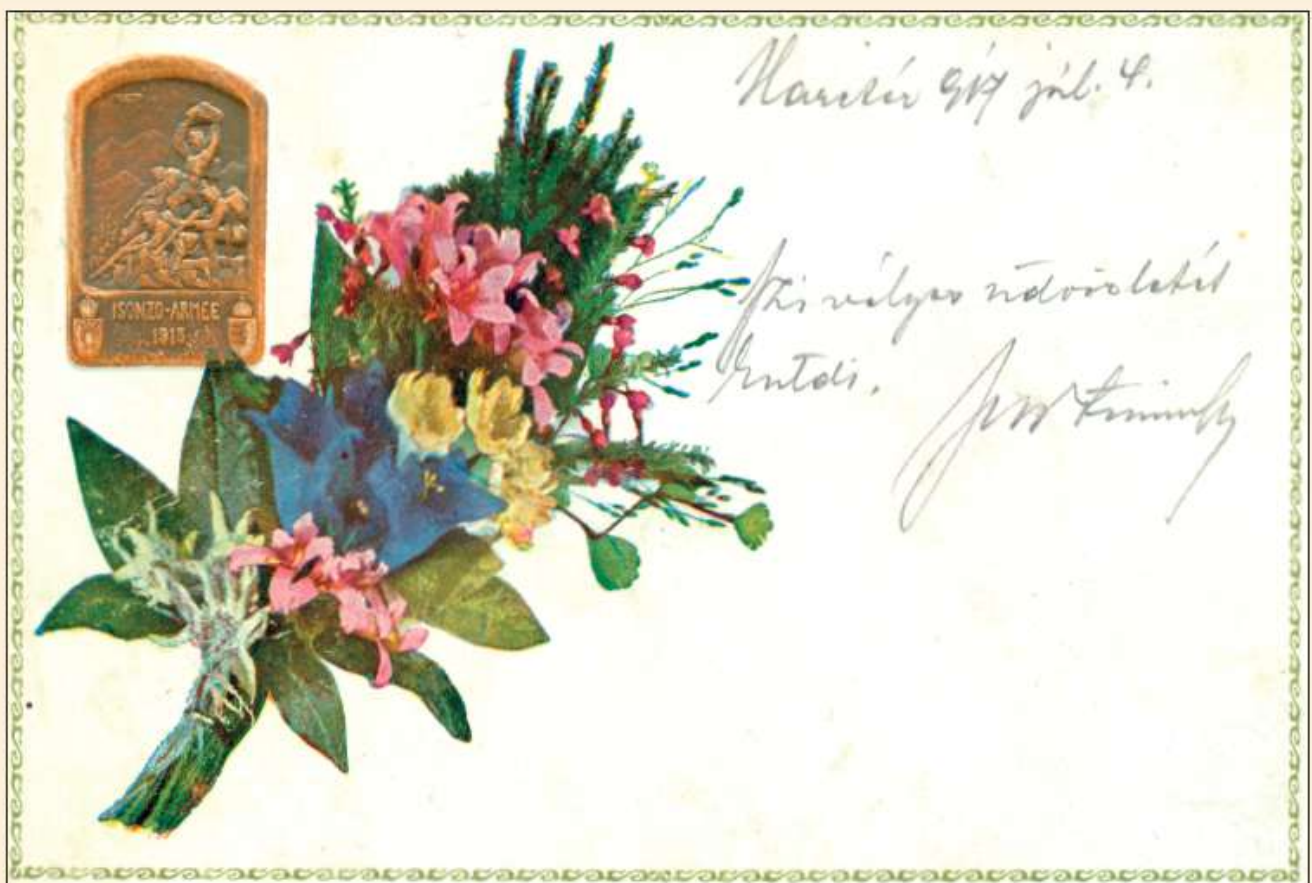 ISONZO-ARMEE
1915
Harctér 917 júl. 4.
Szivélyes üdvözletét
küldi.